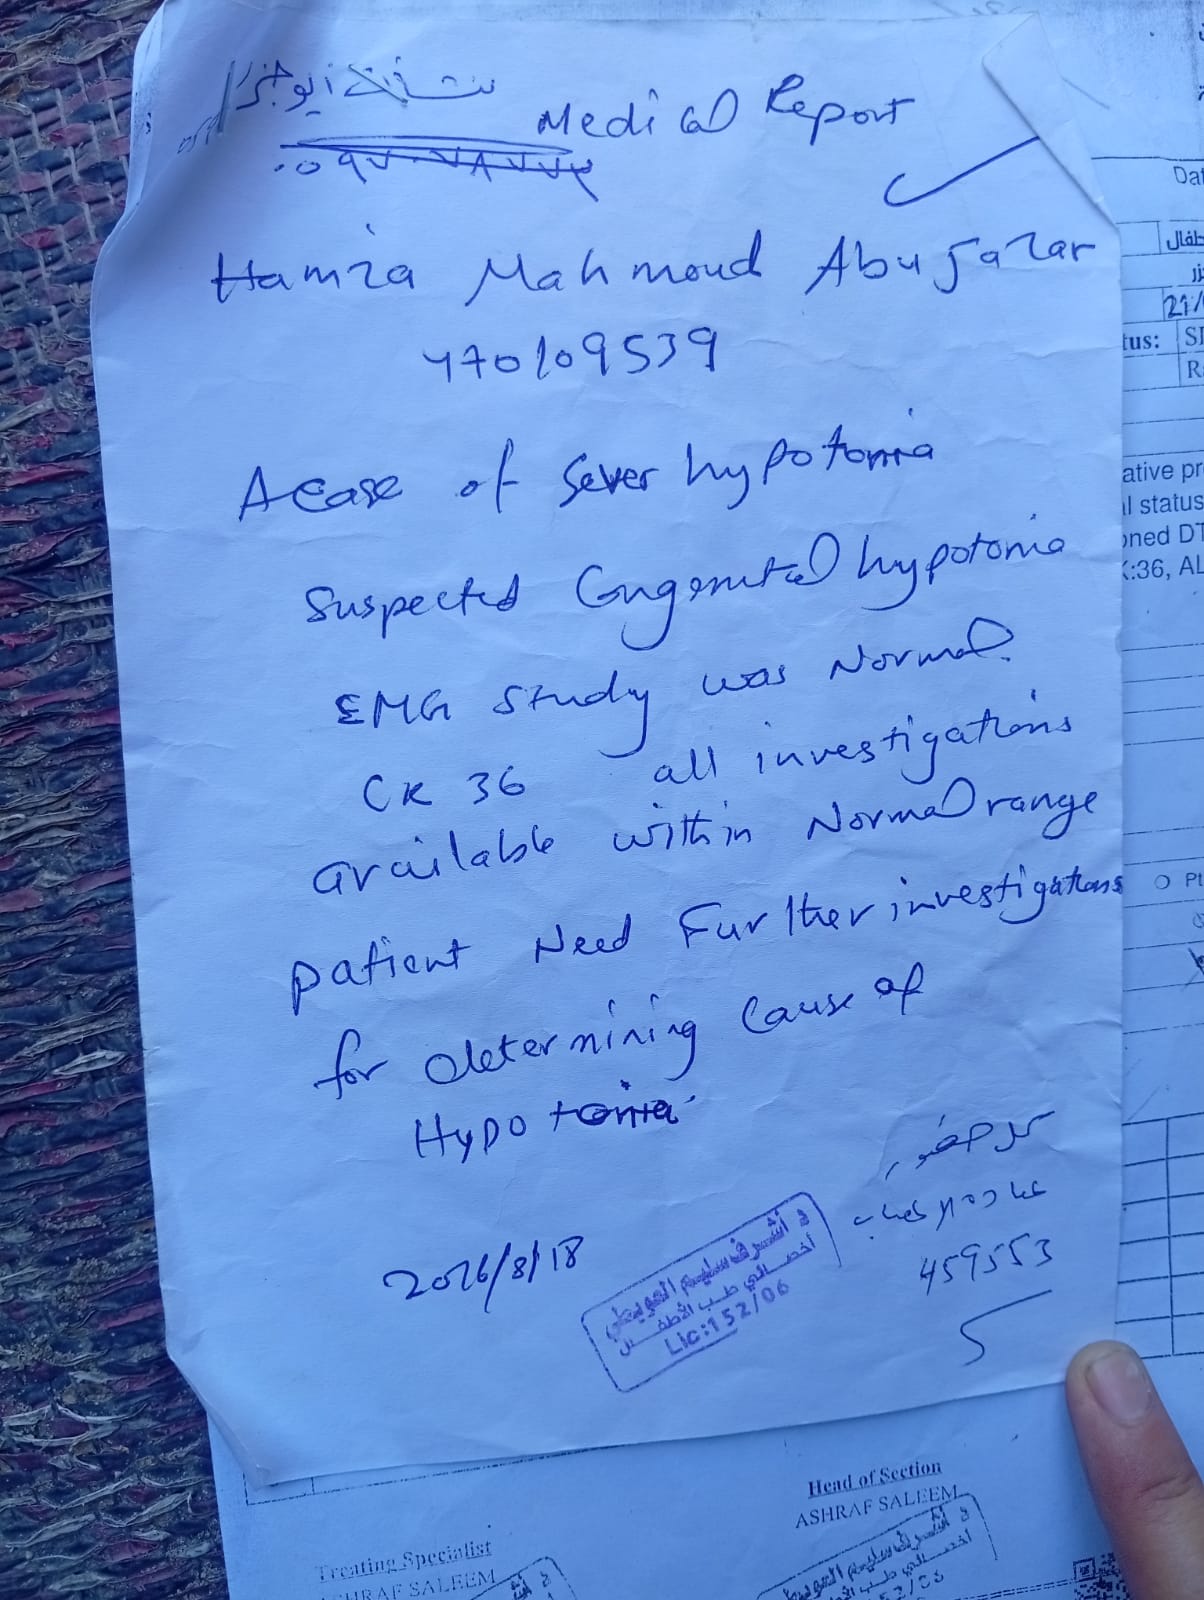 Medical Report
Hamza Mahmoud Abujazar
470109539
A case of Sever hypotonia
Suspected Congenital hypotonia
EMG study was Normal.
CK 36 all investigations
available within Normal range
patient Need Further investigations
for determining cause of
Hypotonia
2026/8/18
د. أشرف سليم العويطي
أخصائي طب الأطفال
Lic: 152/06
459553
Dat
طفال
21/
tus:
ative pr
al status
oned DT
K:36, AL
Head of Section
ASHRAF SALEEM
Treating Specialist
ASHRAF SALEEM